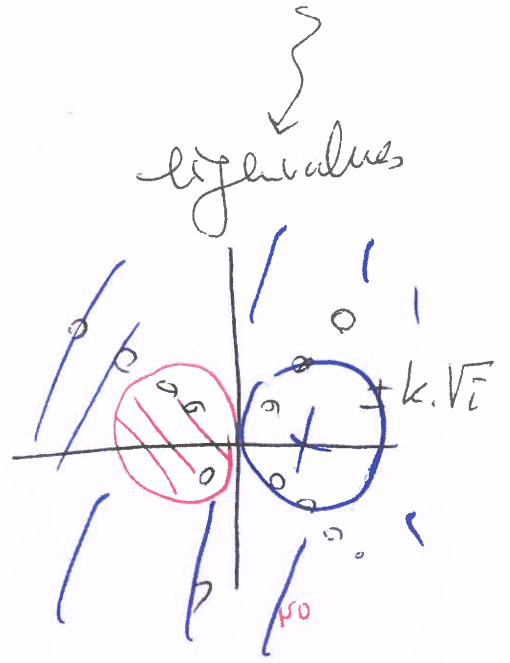 eigenvalues
± k.√i
no